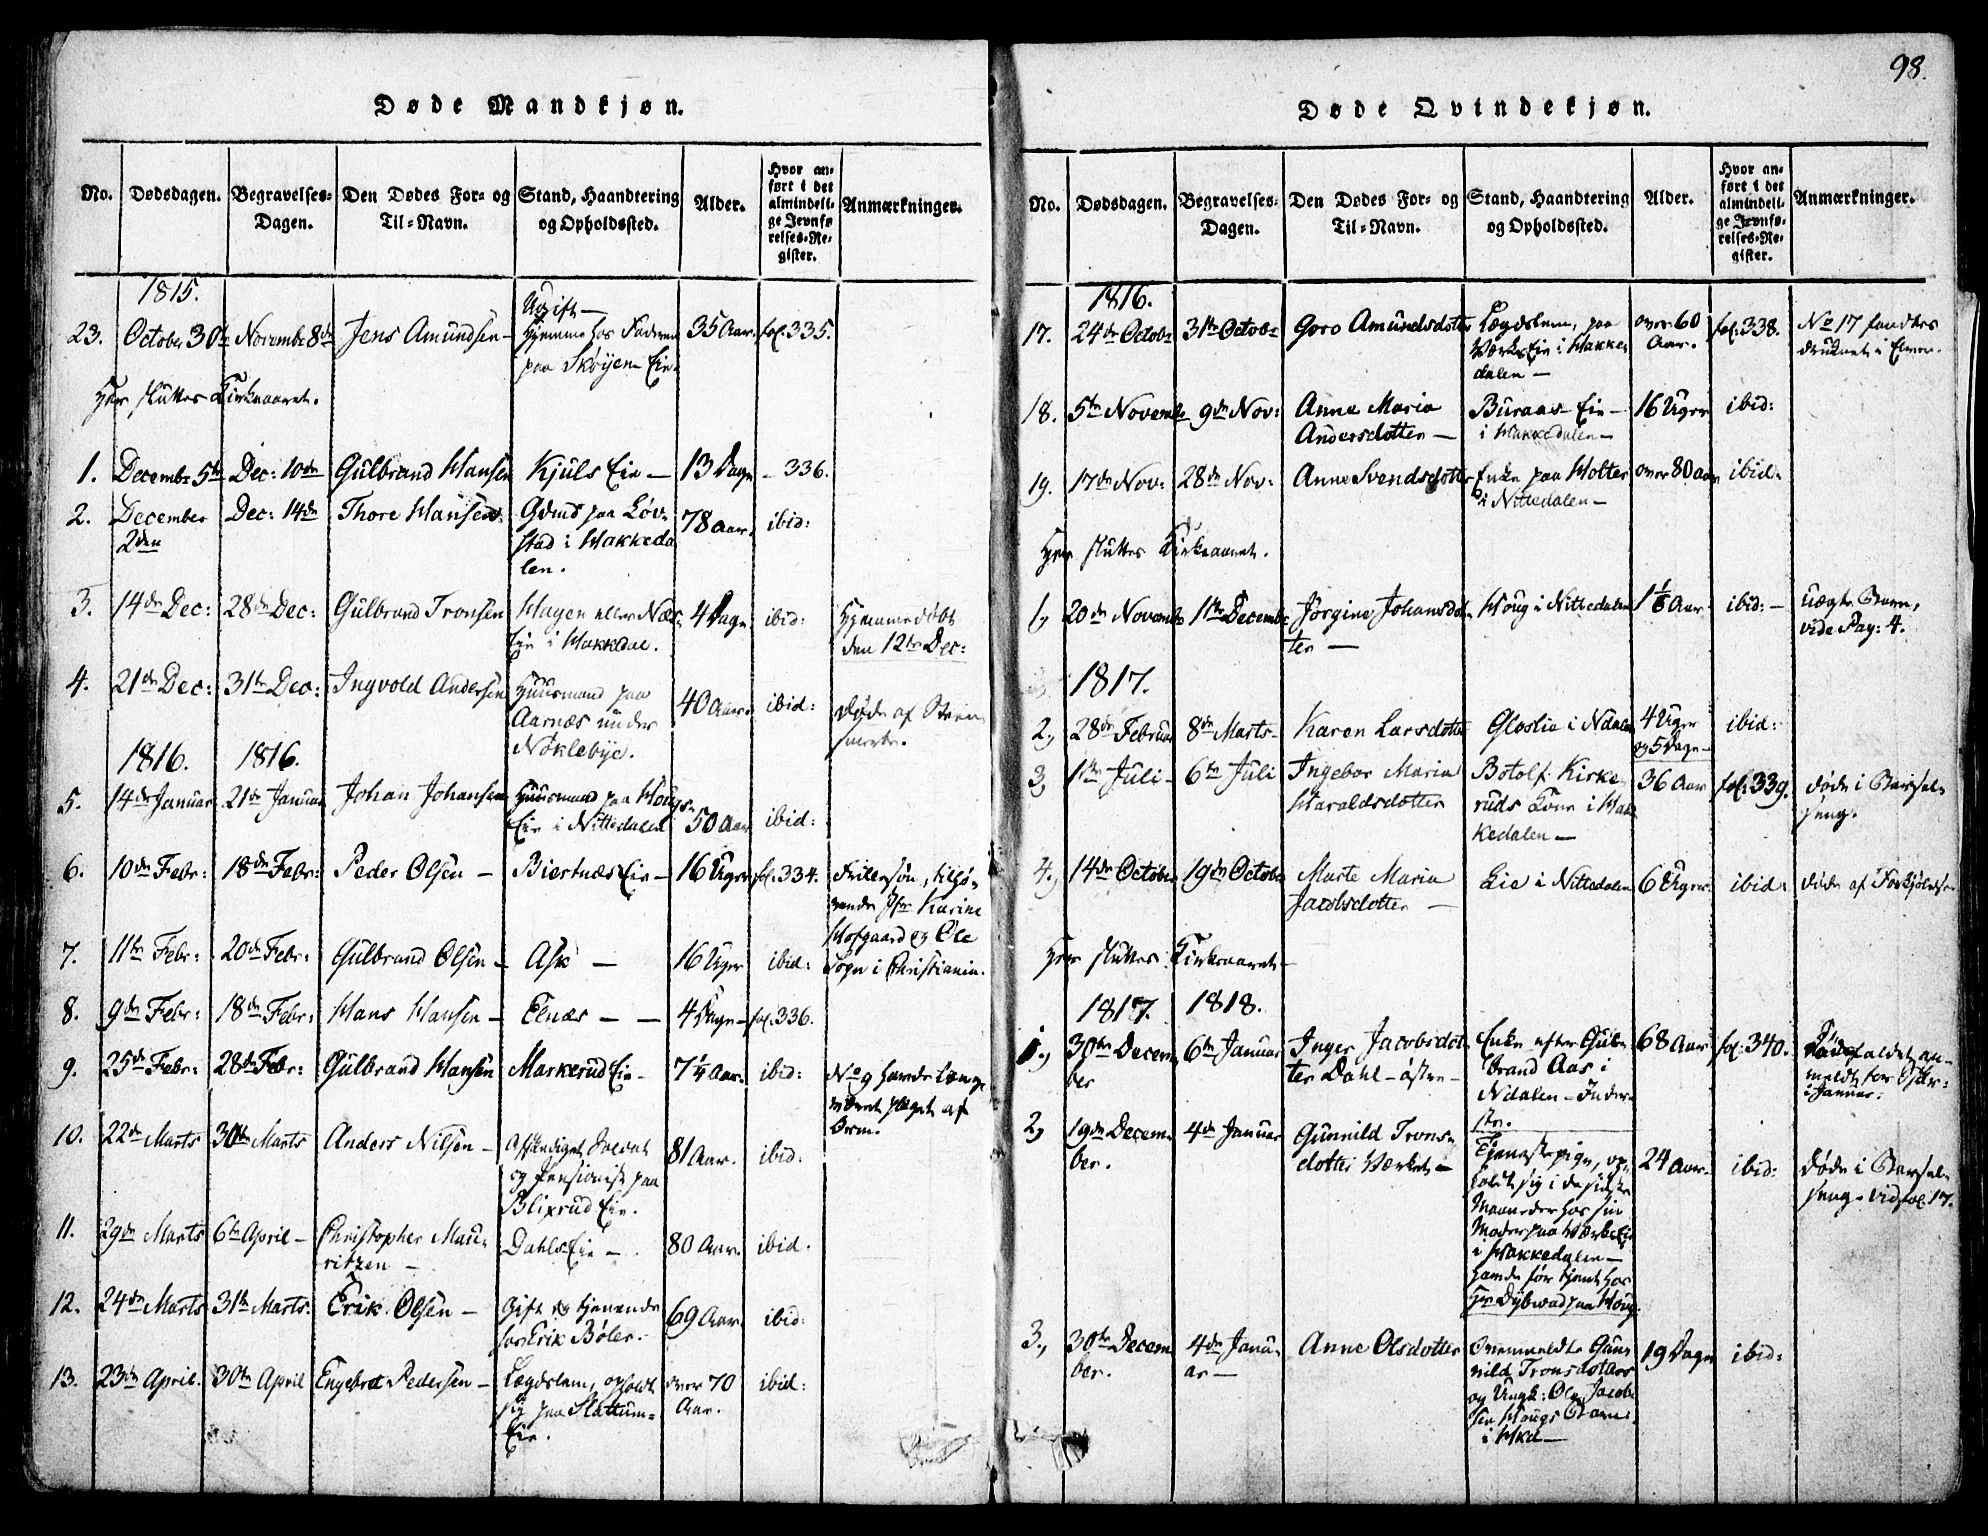 Døde Mandkjøn.
No. Dødsdagen. Begravelses-Dagen. Den Dødes For- og Til-Navn. Stand, Haandtering og Opholdssted. Alder. Hvor anført i det almindelige Jevnførelses-Register. Anmærkninger.
1815.
23. October 30te Novembr 8de Jens Amundsen Ugift - hjemme hos Faderen paa Skøyen Eie 35 Aar. fol. 335.
Her sluttes Kirkeaaret.
1. Decembr 5te Dec: 10de Gulbrand Hansen Kjuls Eie 13 Dage - 336.
2. December 2den Dec: 14de Thore Hansen Gdmd paa Løvstad i Hakkedalen. 78 Aar. ibid:
3. 14de Dec: 28de Dec: Gulbrand Tronsen Hagen eller Næs Eie i Hakkedal. 4 Dage ibid: Hjemmedøbt den 12te Dec:
4. 21de Dec: 31te Dec: Ingvold Andersen Huusmand paa Aarnæs under Nøklebye. 40 Aar. ibid: Døde af Steensmerte.
1816. 1816.
5. 14de Januar 21de Januar Johan Johansen Huusmand paa Hougs Eie i Nittedalen 50 Aar ibid:
6. 10de Febr: 18de Febr: Peder Olsen - Biertnæs Eie - 16 Uger fol. 334. Frillesøn, tilhørende Jfr Karine Hofgaard og Ole Sogn i Christiania.
7. 11te Febr: 20de Febr: Gulbrand Olsen - Ask - 16 Uger ibid:
8. 9de Febr: 18de Febr: Hans Hansen - Elnæs - 4 Dage - fol. 336.
9. 25de Febr: 28de Febr: Gulbrand Hansen Markerud Eie - 7 1/4 Aar. ibid: No 9 havde længe været plaget af Orm.
10. 22de Marts 30te Marts Anders Nilsen - Afskediget Soldat og Pensionist paa Blixrud Eie. 81 Aar. ibid:
11. 29de Marts 6te April - Christopher Mauritzen - Dahls Eie - 80 Aar. ibid.
12. 24de Marts 31te Marts: Erik Olsen - Gift og tjenende hos Erik Bøler. 69 Aar. ibid:
13. 23de April. 30te April Engebret Pedersen - Lægdslem, opholdt sig paa Slattum-Eie. over 70 Aar. ibid:
98.
Døde Qvindekjøn.
No. Dødsdagen. Begravelses-Dagen. Den Dødes For- og Til-Navn. Stand, Haandtering og Opholdssted. Alder. Hvor anført i det almindelige Jevnførelses-Register. Anmærkninger.
1816.
17. 24de Octobr 31te Octobr Goro Amundsdotter Lægdslem, paa Værks Eie i Hakkedalen - over 60 Aar. fol. 338. No 17 fandtes druknet i Elven.
18. 5te Novembr 9de Nov: Anne Maria Andersdotter - Buraas Eie - i Hakkedalen - 16 Uger ibid:
19. 17de Nov: 28de Nov: Anne Svendsdotter Enke paa Holter i Nittedalen - over 80 Aar ibid:
Her sluttes Kirkeaaret.
1, 20de Novembr 1ste Decembr Jørgine Johansdotter - Houg i Nittedalen 1 1/8 Aar ibid: - uægte Barn, vide Pag: 4.
1817.
2, 28de Februar 8de Marts - Karen Larsdotter Gloslie i Ndalen 4 Uger og 5 Dage - ibid:
3, 1ste Juli - 6te Juli Ingebor Maria Haraldsdotter Botolf Kirkeruds Kone i Hakkedalen - 36 Aar fol. 339. Døde i Barselseng.
4., 14de October 19de October Marte Maria Jacobsdotter - Lie i Nittedalen 6 Uger ibid: Døde af Forkjølelse
Her sluttes Kirkeaaret -
1817. 1818.
1., 30te December 6te Januar Inger Jacobsdotter Dahl - østre - Enke efter Gulbrand Aas i Nidalen - Inderster. 68 Aar fol. 340. Dødsfaldet anmeldt for Skr: i Januar.
2, 19de December. 4de Januar Gunnild Tronsdotter Værket - Tjenestepige, opholdt sig i de sidste Maaneder hos sin Moder paa Værks Eie i Hakkedalen - havde før tjent hos Hr Dybwad paa Houg. 24 Aar. ibid: Døde i Barselseng - vid fol. 17.
3., 30te December. 4de Januar - Anne Olsdotter Ovenmeldte Gunnild Tronsdotters og Ungk: Ole Jacobsen Hougs Barn i Hkd - 19 Dage ibid: